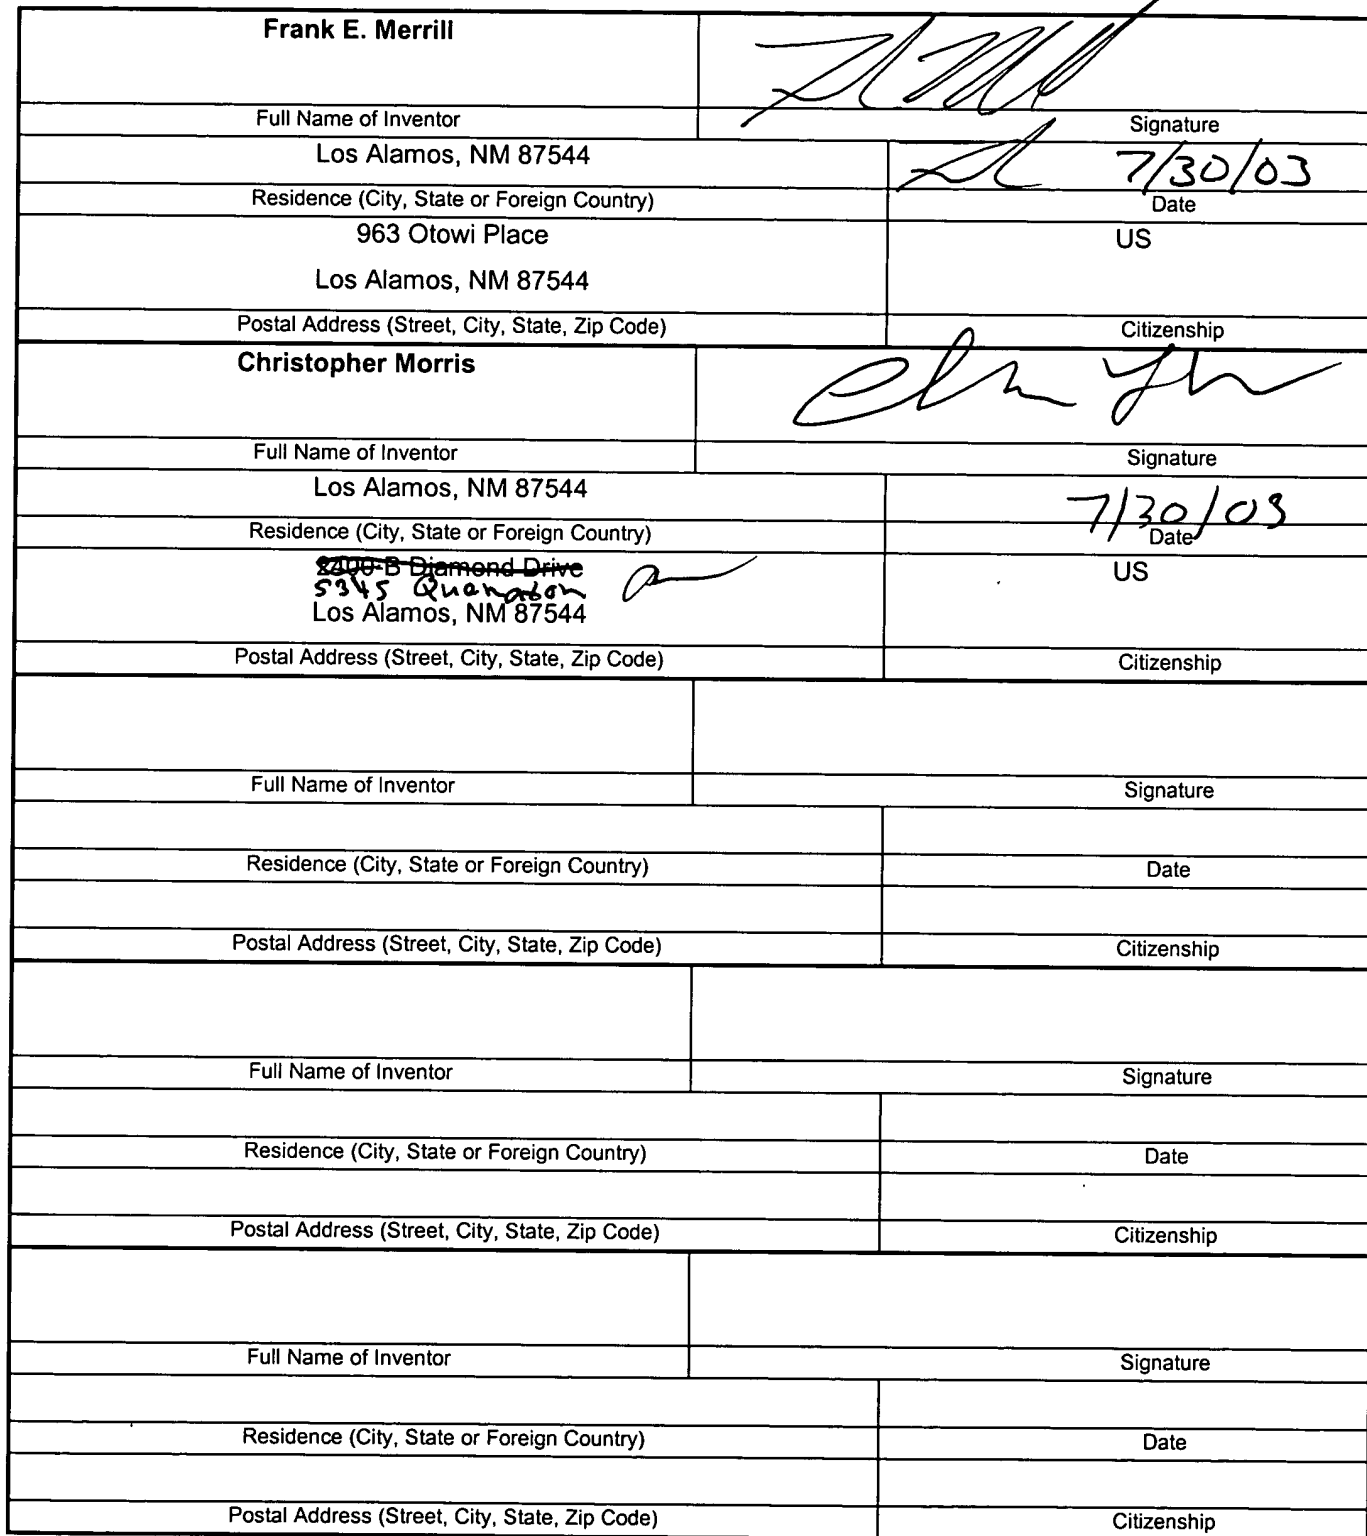 Frank E. Merrill
Full Name of Inventor Signature
Los Alamos, NM 87544 7/30/03
Residence (City, State or Foreign Country) Date
963 Otowi Place US
Los Alamos, NM 87544
Postal Address (Street, City, State, Zip Code) Citizenship
Christopher Morris
Full Name of Inventor Signature
Los Alamos, NM 87544 7/30/03
Residence (City, State or Foreign Country) Date
2400-B Diamond Drive US
5345
Los Alamos, NM 87544
Postal Address (Street, City, State, Zip Code) Citizenship
Full Name of Inventor Signature
Residence (City, State or Foreign Country) Date
Postal Address (Street, City, State, Zip Code) Citizenship
Full Name of Inventor Signature
Residence (City, State or Foreign Country) Date
Postal Address (Street, City, State, Zip Code) Citizenship
Full Name of Inventor Signature
Residence (City, State or Foreign Country) Date
Postal Address (Street, City, State, Zip Code) Citizenship